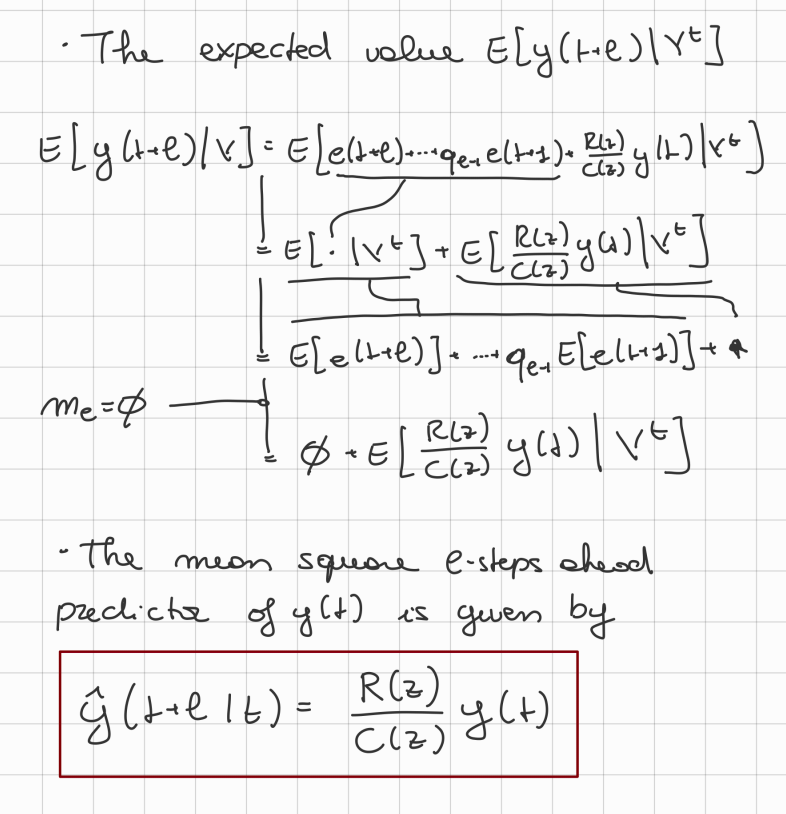 · The expected value E[y(t+ℓ)|Y^t]
E[y(t+ℓ)|Y] = E[e(t+ℓ)+...+q_{ℓ-1}e(t+1)+\frac{R(z)}{C(z)}y(t)|Y^t]
= E[·|Y^t] + E[\frac{R(z)}{C(z)}y(t)|Y^t]
= E[e(t+ℓ)]+...+q_{ℓ-1}E[e(t+1)]+
m_e=∅
= ∅ + E[\frac{R(z)}{C(z)}y(t)|Y^t]
· The mean square ℓ-steps ahead
predictor of y(t) is given by
ŷ(t+ℓ|t) = \frac{R(z)}{C(z)}y(t)